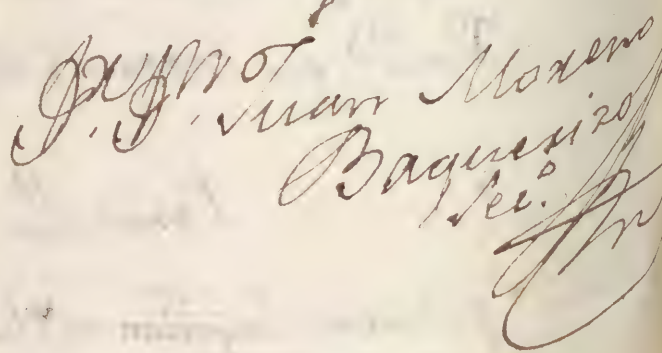 Juan Moreno
Baquerizo
Sec.º